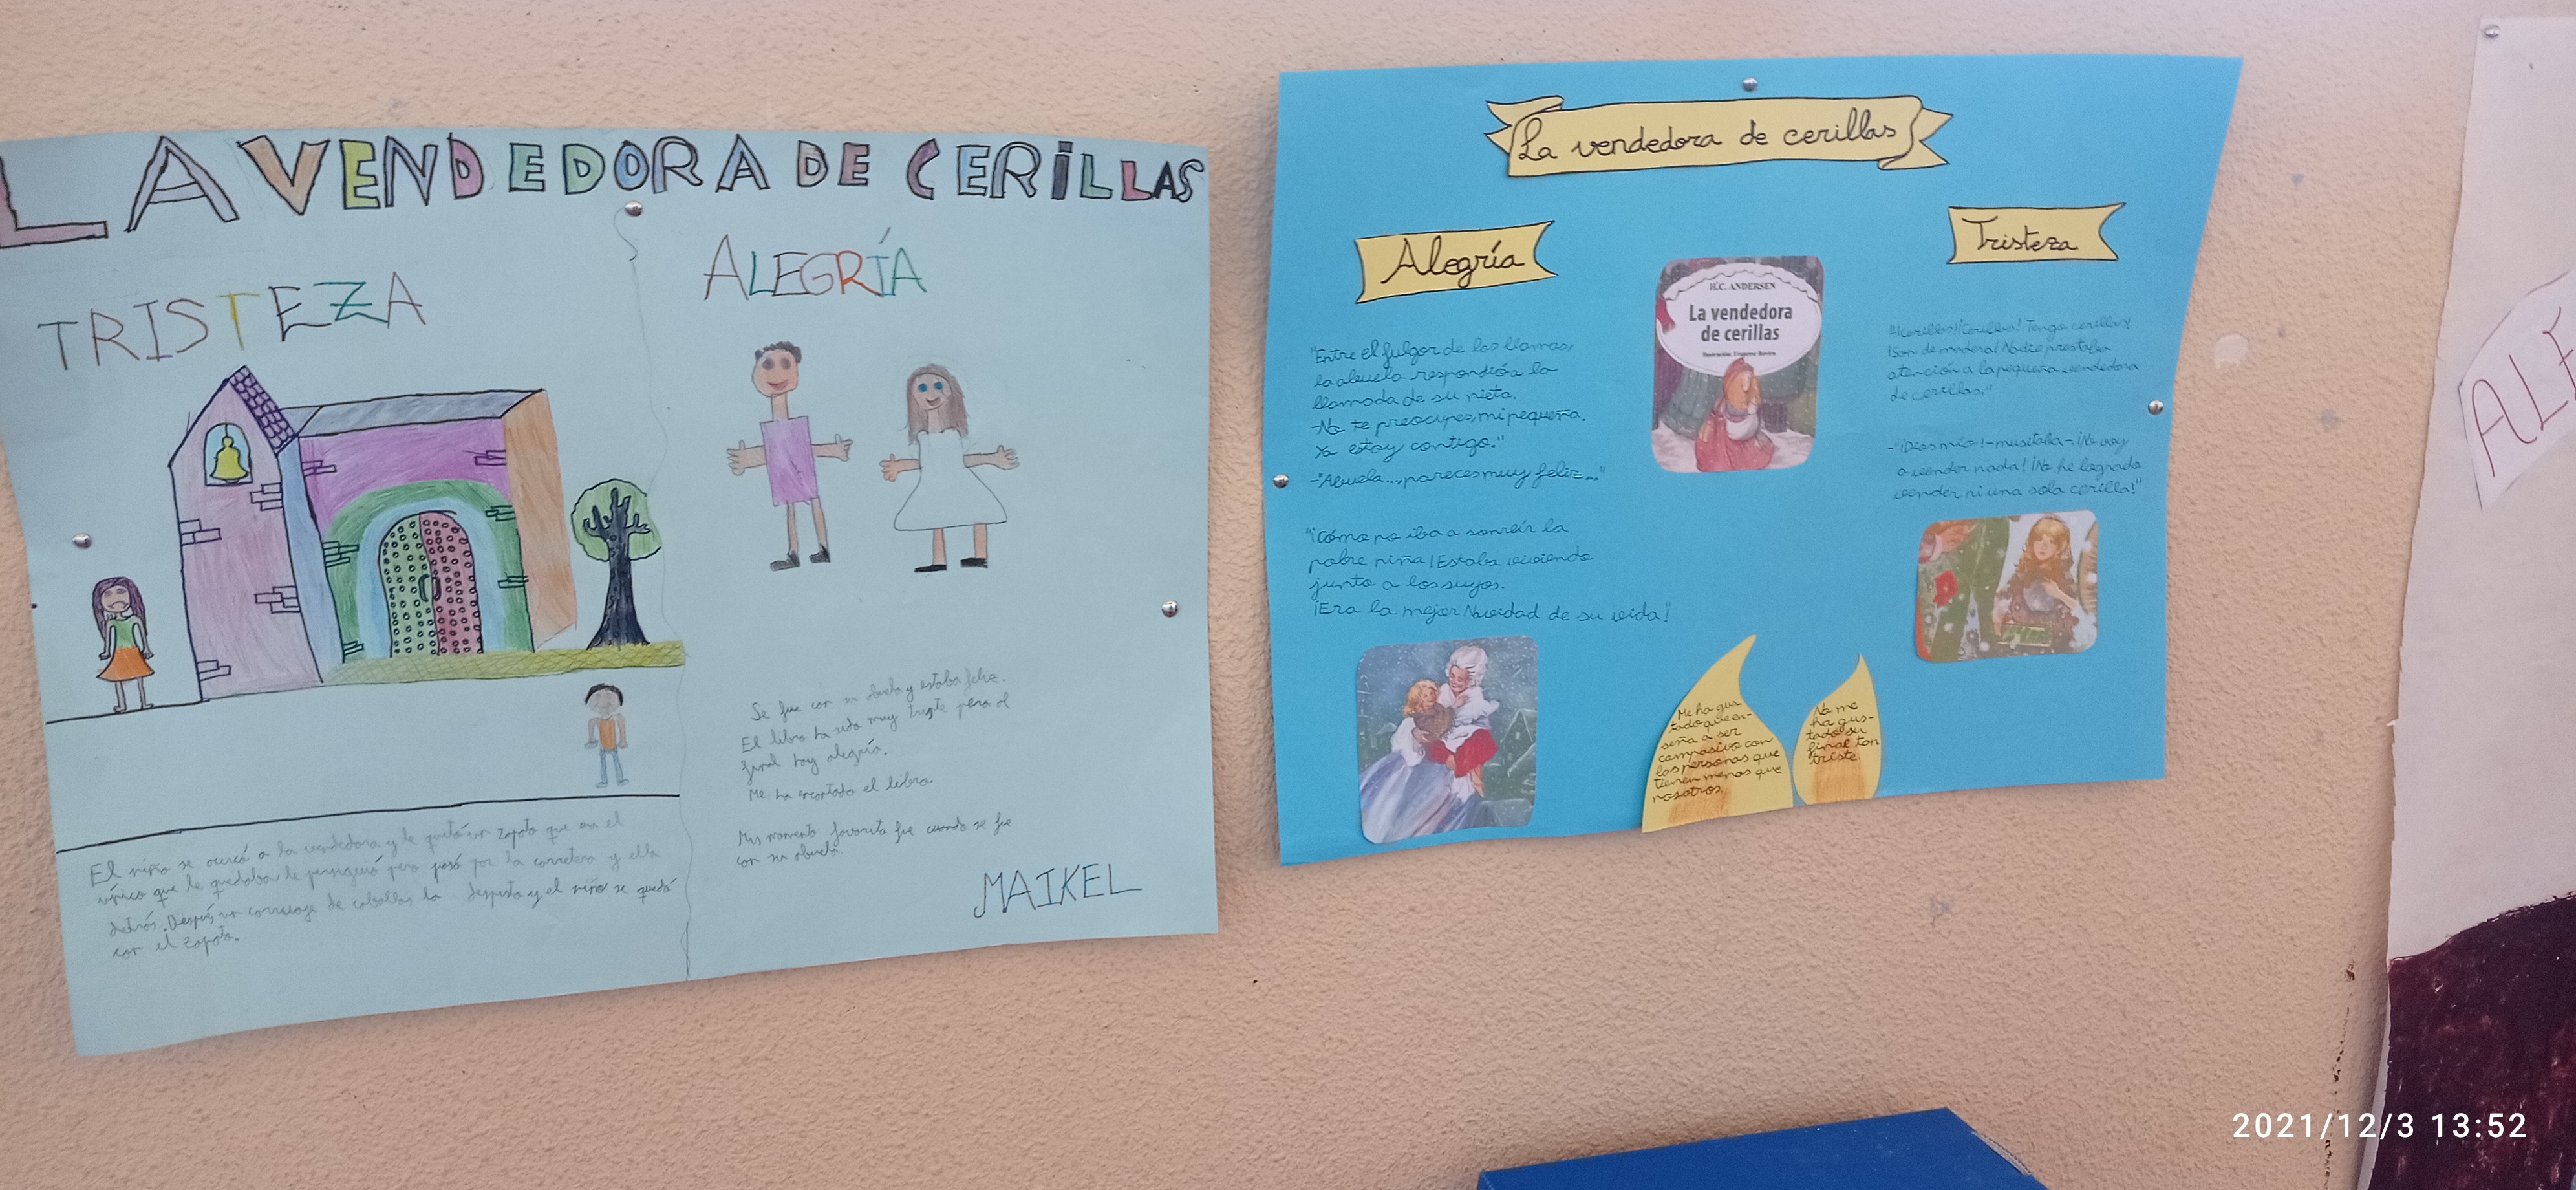 LA VENDEDORA DE CERILLAS
TRISTEZA
El niño se acercó a la vendedora y le quitó un zapato que era el
único que le quedaba le persiguió pero pasó por la carretera y ella
detrás. Después un carruaje de caballos la despista y el niño se quedó
con el zapato.
ALEGRÍA
Se fue con su abuela y estaba feliz.
El libro ha sido muy triste pero al
final hay alegría.
Me ha encantado el libro.
Mis momento favorito fue cuando se fue
con su abuela.
MAIKEL
La vendedora de cerillas
Alegría
"Entre el fulgor de las llamas,
la abuela respondió a la
llamada de su nieta.
-No te preocupes, mi pequeña.
Yo estoy contigo."
-"Abuela..., pareces muy feliz..."
"¡Cómo no iba a sonreír la
pobre niña! Estaba viviendo
junto a los suyos.
¡Era la mejor Navidad de su vida!"
H.C. ANDERSEN
La vendedora
de cerillas
Tristeza
"¡Cerillas! ¡Cerillas! Tengo cerillas!
¡Son de madera! Nadie prestaba
atención a la pequeña vendedora
de cerillas."
-"¡Dios mío!-musitaba-¡No voy
a vender nada! ¡No he logrado
vender ni una sola cerilla!"
Me ha gus
tado que en-
seña a ser
compasivo con
las personas que
tienen menos que
nosotros.
No me
ha gus-
tado su
final tan
triste
ALE
2021/12/3 13:52